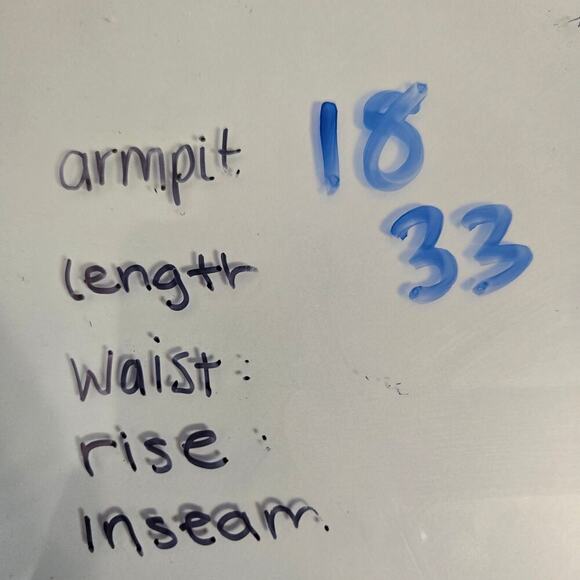 armpit 18
length 33
waist:
rise:
inseam.